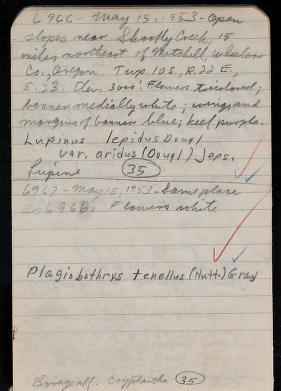 6966 - May 15, 1953 - Open
slopes near Shoofly Creek, 15
miles northeast of Mitchell, Wheeler
Co., Oregon, Twp. 10S, R.22 E,
S. 23 Elev. 3000' Flowers two-toned;
banner medially white; wings and
margins of banner blue; keel purple.
Lupinus lepidus Dougl
var. aridus (Dougl.) Jeps.
Lupine 35
6967 - May 15, 1953 - Same place
as 6966. Flowers white
Plagiobothrys tenellus (Nutt.) Gray
Boragaff. Cryptantha 35